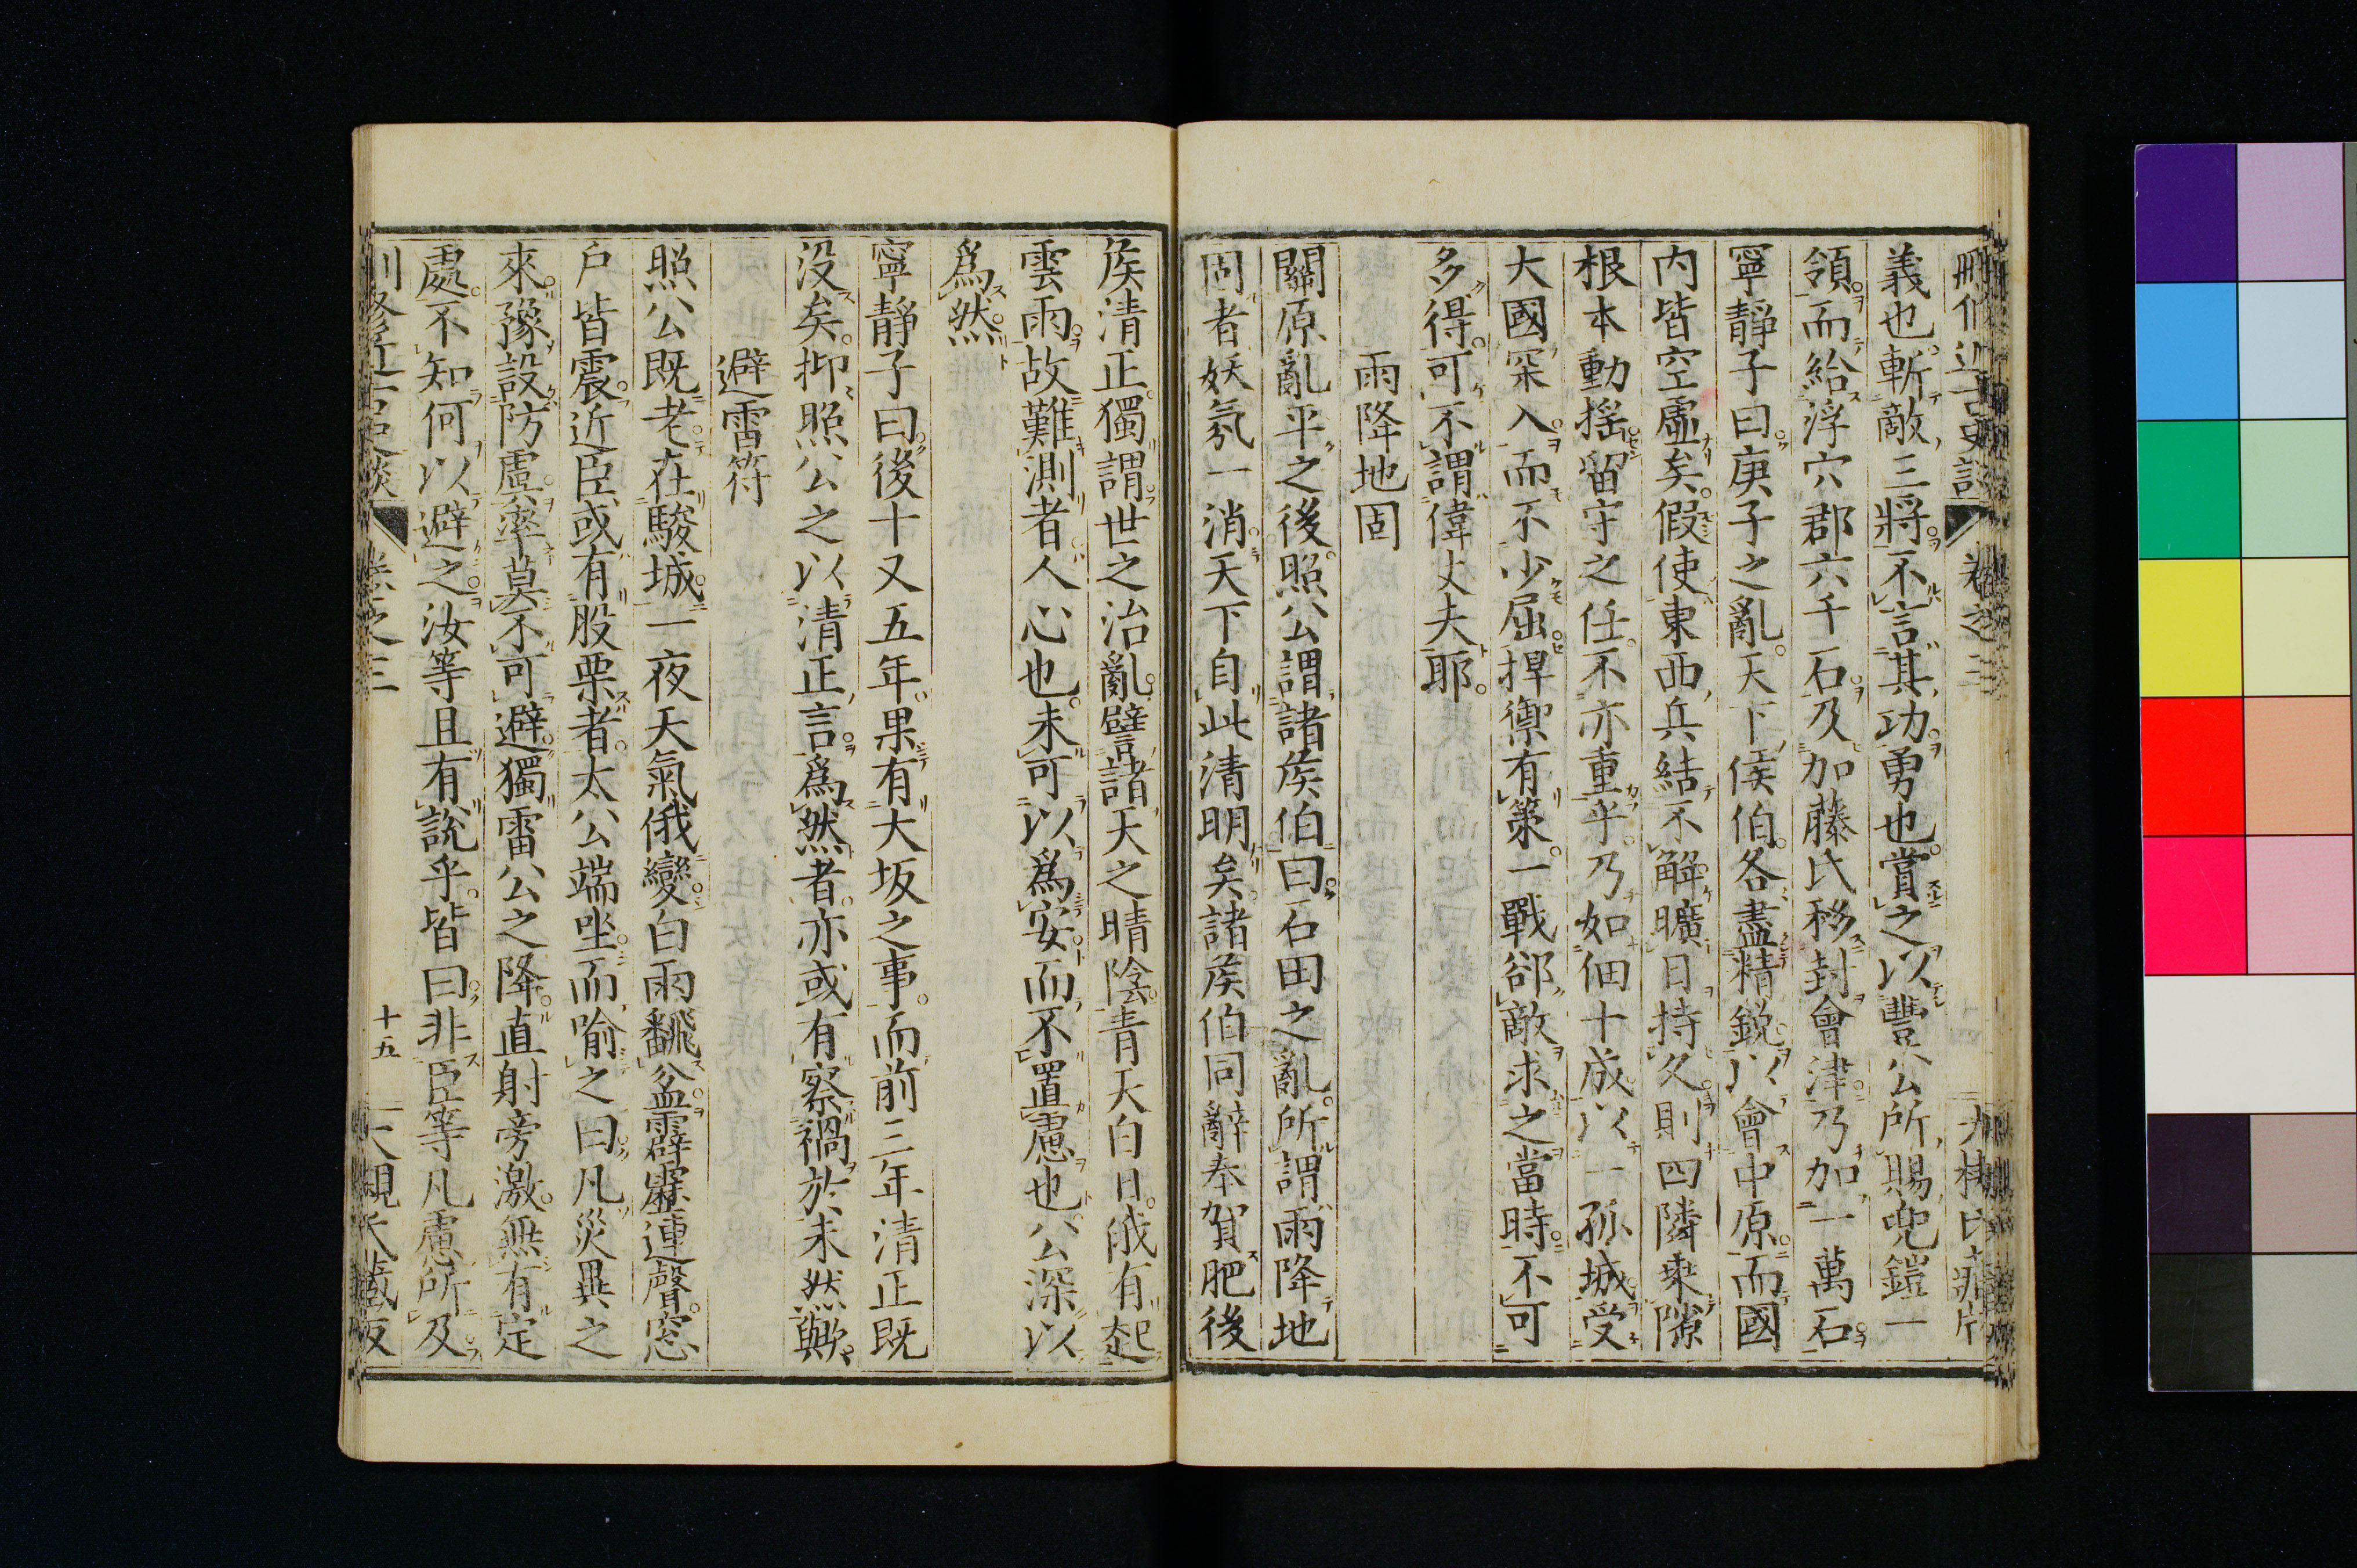 義也。斬敵三將。不言其功勇也。賞之以豐公所賜兜鎧一
領。而給浮穴郡六千石。及加藤氏移封會津。乃加一萬石。
寧靜子曰。庚子之亂。天下侯伯。各盡精鋭。以會中原。而國
内皆空虛矣。假使東西兵結不解。曠日持久。則四隣乗隙。
根本動揺。留守之任。不亦重乎。乃如佃十成。以一孤城。受
大國深入。而不少屈。捍禦有策。一戰郤敵。求之當時。不可
多得。可不謂偉丈夫耶。
雨降地固
關原亂平之後。照公謂諸侯伯曰。石田之亂。所謂雨降地
固者。妖氛一消。天下自此清明矣。諸侯伯同辭奉賀。肥後
侯清正。獨謂世之治亂。譬諸天之晴陰。青天白日。俄有起
雲雨。故難測者人心也。未可以爲安。而不置慮也。公深以
爲然。
寧靜子曰。後十又五年。果有大坂之事。而前三年清正既
没矣。抑照公之以清正言。爲然者。亦或有察禍於未然歟。
避雷符
照公既老。在駿城。一夜天氣俄變。白雨飜盆。霹靂連聲。窓
戸皆震。近臣或有股栗者。太公端坐。而喻之曰。凡災異之
來。豫設防虞。率莫不可避。獨雷公之降。直射旁激。無有定
處。不知何以避之。汝等且有説乎。皆曰。非臣等凡慮所及
卷之三
十五